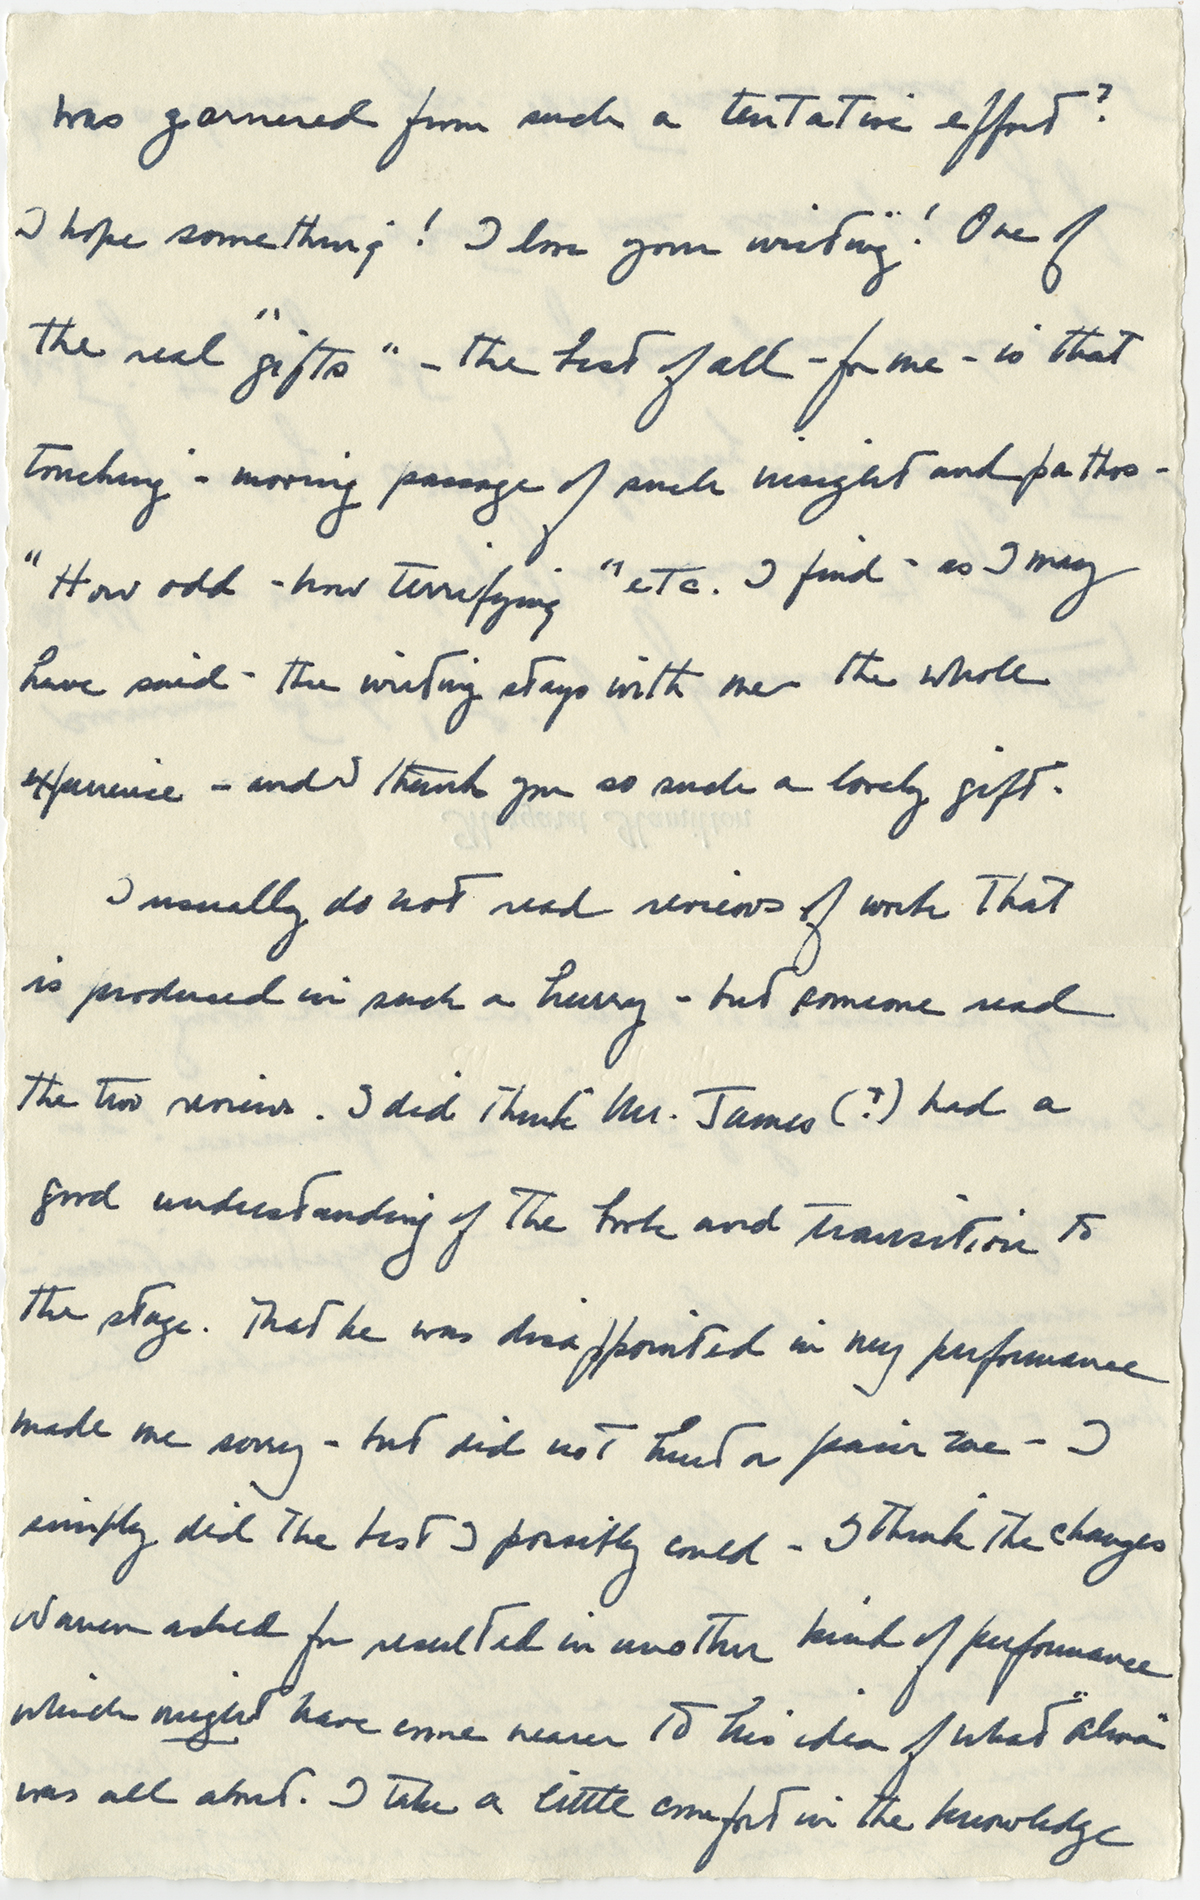 was garnered from such a tentative effort?
I hope something! I love your writing! One of
the real "gifts" - the best of all - for me - is that
touching - moving passage of such insight and pathos -
"How odd - how terrifying" etc. I find - as I may
have said - the writing stays with me - the whole
experience - and I thank you so such a lovely gift.
I usually do not read reviews of work that
is produced in such a hurry - but someone read
the two reviews. I did think Mr. James (?) had a
good understanding of the book and transition to
the stage. That he was disappointed in my performance
made me sorry - but did not hurt or pain me - I
simply did the best I possibly could - I think the changes
asked for resulted in another kind of performance
which might have come nearer to his idea of what "Alma"
was all about. I take a little comfort in the knowledge